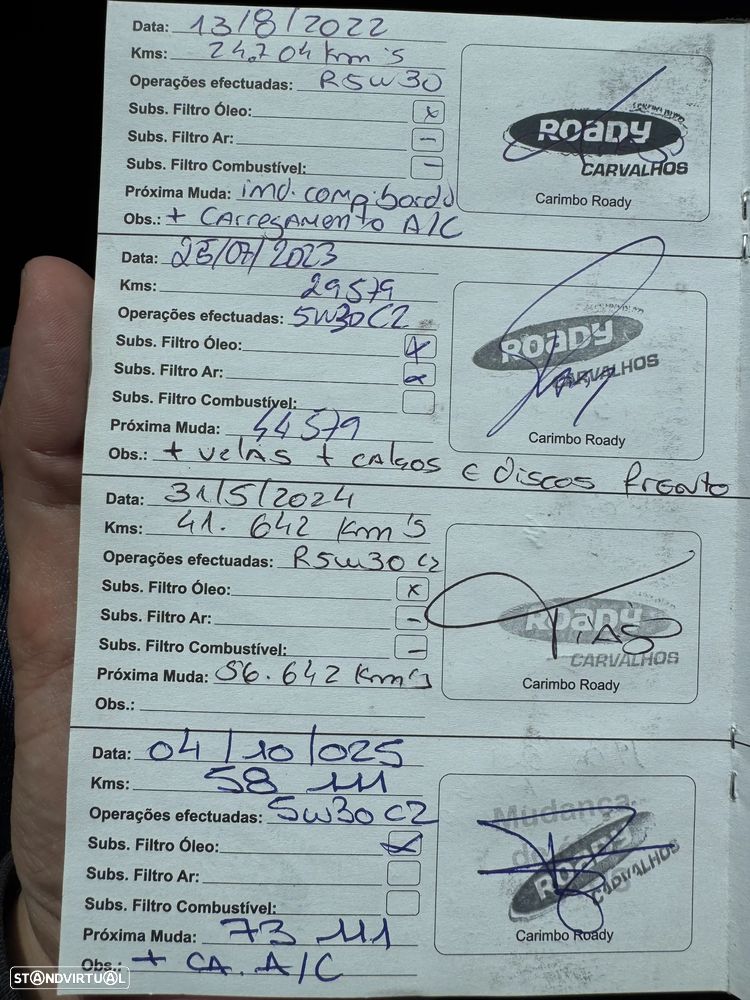 Data: 13/8/2022
Kms: 24.704 Km's
Operações efectuadas: R5W30
Subs. Filtro Óleo: x
Subs. Filtro Ar: -
Subs. Filtro Combustível: -
Próxima Muda: ind. comp. bordo
Obs.: + CARREGAMENTO A/C
ROADY
CARVALHOS
Carimbo Roady
Data: 25/07/2023
Kms: 29579
Operações efectuadas: 5W30 C2
Subs. Filtro Óleo: x
Subs. Filtro Ar: x
Subs. Filtro Combustível:
Próxima Muda: 44579
Obs.: + velas + calços e discos frente
ROADY
CARVALHOS
Carimbo Roady
Data: 31/5/2024
Kms: 41.642 Km's
Operações efectuadas: R5W30 C2
Subs. Filtro Óleo: x
Subs. Filtro Ar: -
Subs. Filtro Combustível: -
Próxima Muda: 56.642 Km's
Obs.:
ROADY
TIAGO
CARVALHOS
Carimbo Roady
Data: 04/10/025
Kms: 58 111
Operações efectuadas: 5W30 C2
Subs. Filtro Óleo: x
Subs. Filtro Ar:
Subs. Filtro Combustível:
Próxima Muda: 73 111
Obs.: + CA. A/C
Mudança
ROADY
CARVALHOS
Carimbo Roady
STANDVIRTUAL